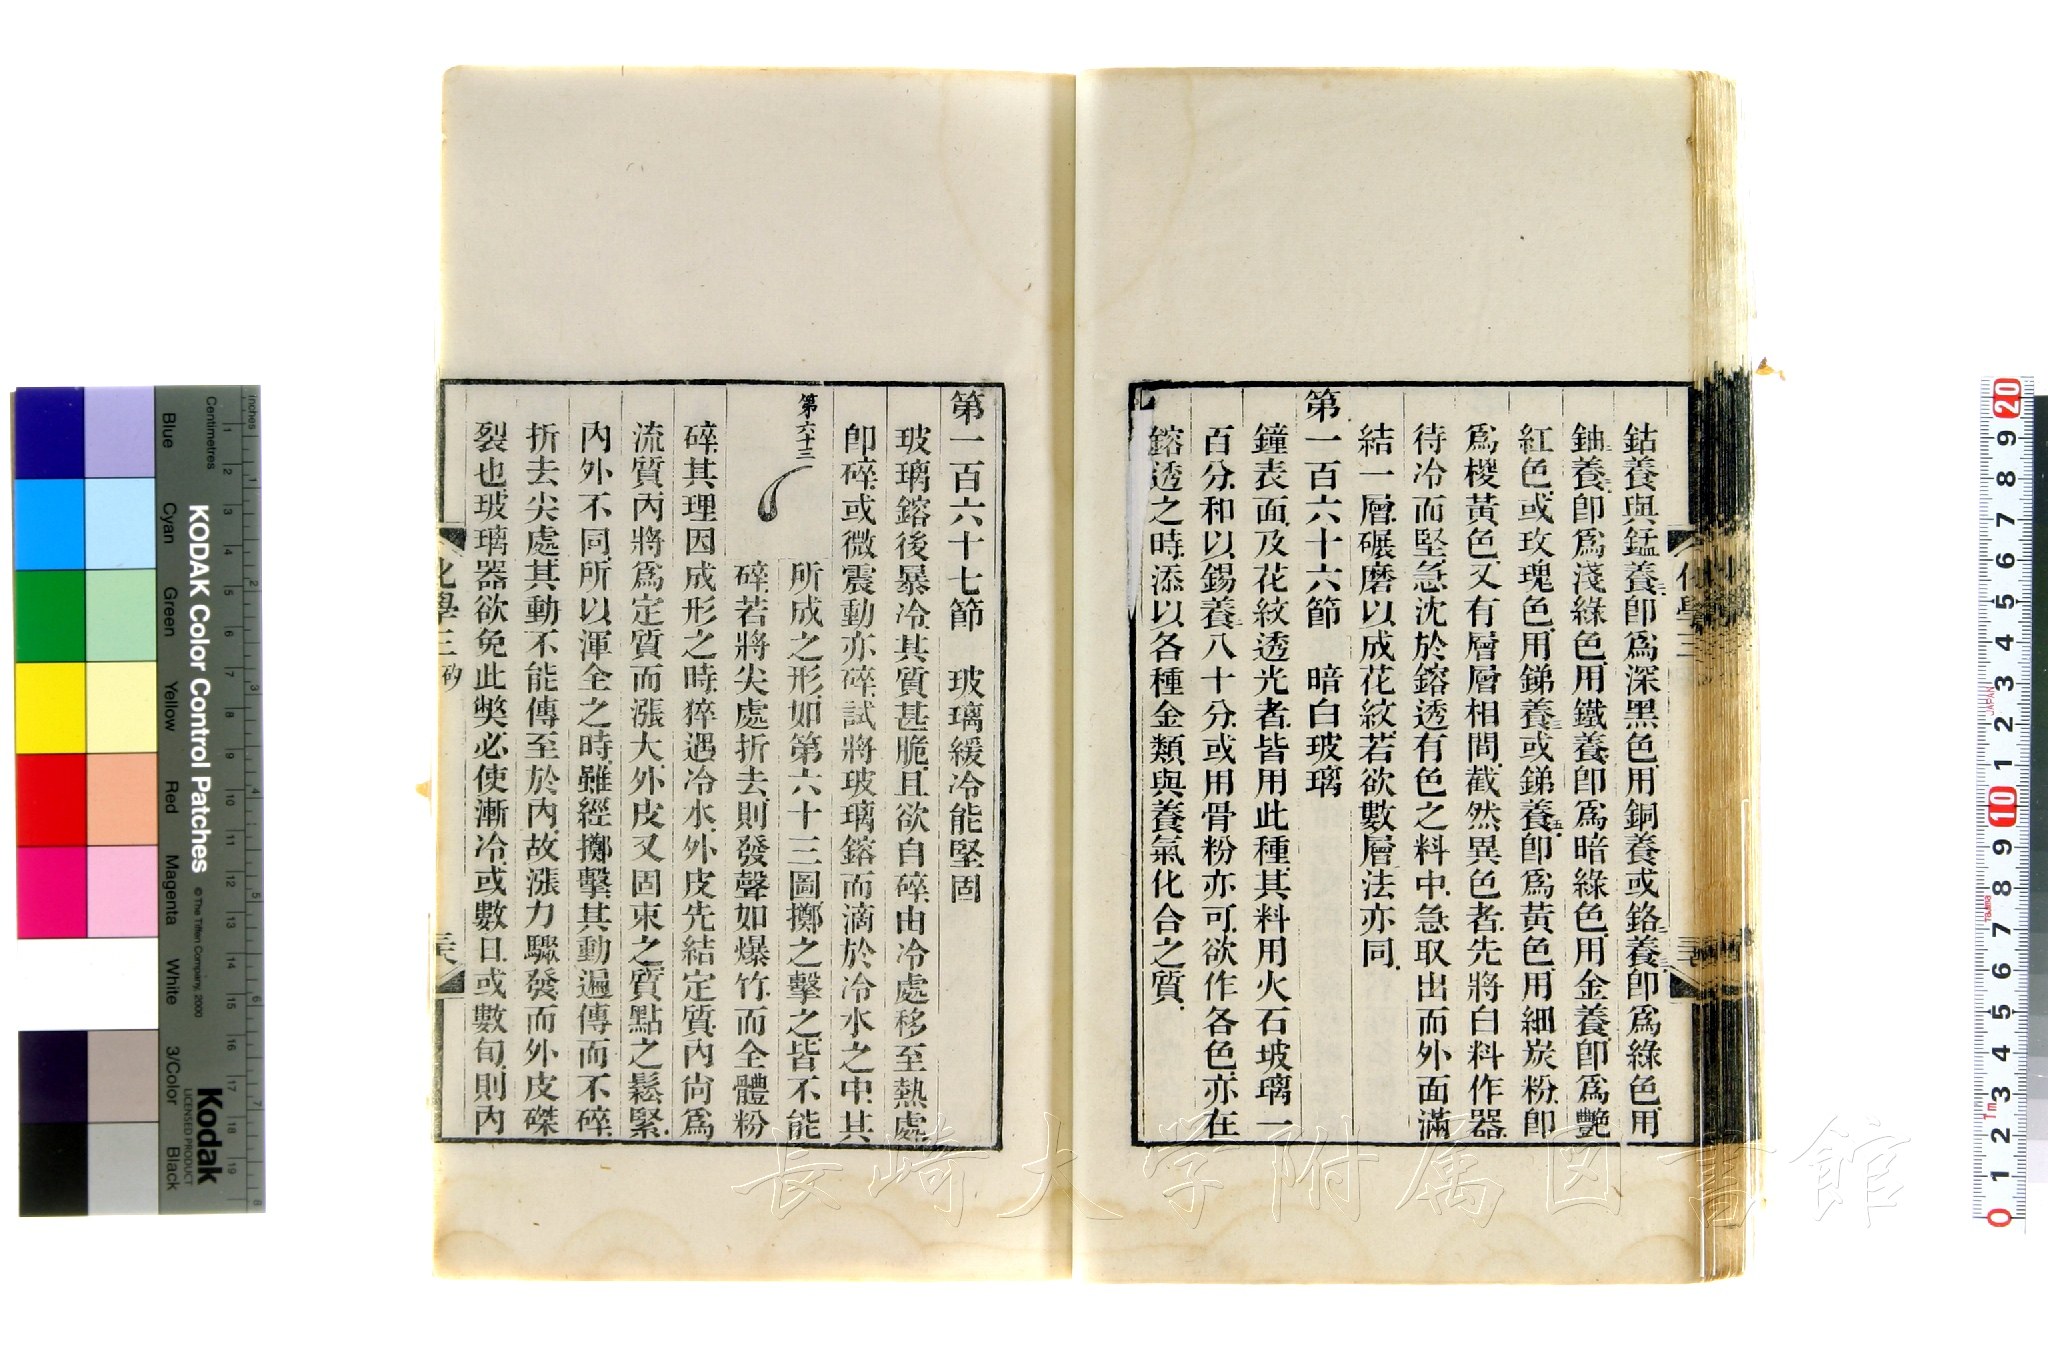 鈷養與錳養卽爲深黑色用銅養或鉻養卽爲綠色用
鈾養卽爲淺綠色用鐵養卽爲暗綠色用金養卽爲艷
紅色或玫瑰色用銻養或銻養卽爲黃色用細炭粉卽
爲椶黃色又有層層相間截然異色者先將白料作器
待冷而堅急沈於鎔透有色之料中急取出而外面滿
結一層碾磨以成花紋若欲數層法亦同
第一百六十六節　暗白玻璃
鐘表面及花紋透光者皆用此種其料用火石玻璃一
百分和以錫養八十分或用骨粉亦可欲作各色亦在
鎔透之時添以各種金類與養氣化合之質
第一百六十七節　玻璃緩冷能堅固
玻璃鎔後暴冷其質甚脆且欲自碎由冷處移至熱處
卽碎或微震動亦碎試將玻璃鎔而滴於冷水之中其
第六十三
所成之形如第六十三圖擲之擊之皆不能
碎若將尖處折去則發聲如爆竹而全體粉
碎其理因成形之時猝遇冷水外皮先結定質內尙爲
流質內將爲定質而漲大外皮又固束之質點之鬆緊
內外不同所以渾全之時雖經擲擊其動遍傳而不碎
折去尖處其動不能傳至於內故漲力驟發而外皮磔
裂也玻璃器欲免此獘必使漸冷或數日或數旬則內
化學三
KODAK Color Control Patches
© The Tiffen Company, 2000
Kodak
LICENSED PRODUCT
Blue
Cyan
Green
Yellow
Red
Magenta
White
3/Color
Black
Centimetres
inches
長崎大学附属図書館
JAPAN